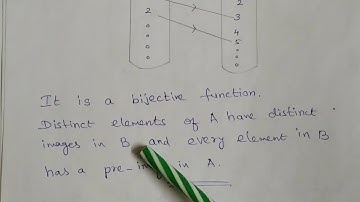 2
2
3
4
5
It is a bijective function.
Distinct elements of A have distinct
images in B and every element in B
has a in A.